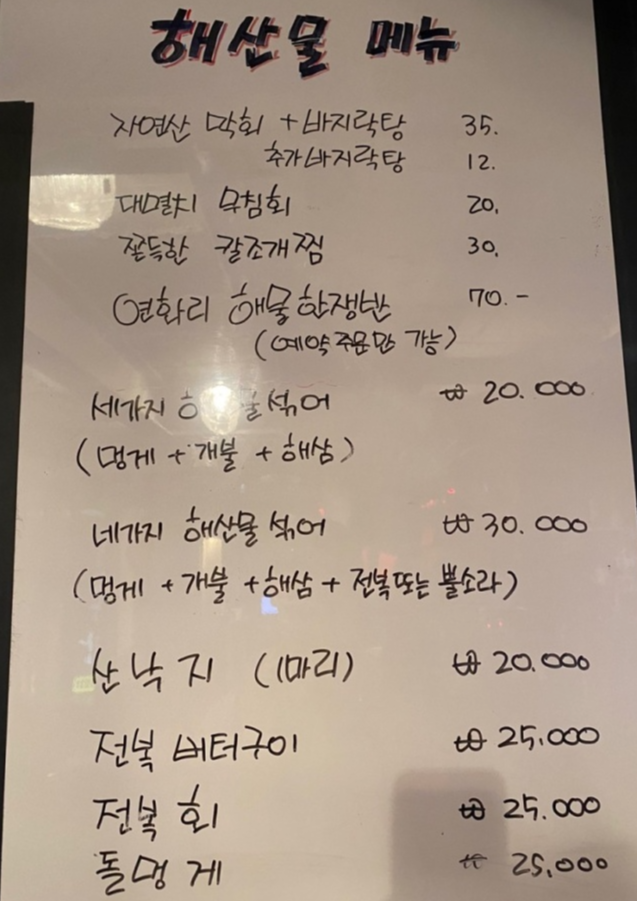 해산물 메뉴
자연산 막회 + 바지락탕 35.
추가바지락탕 12.
대멸치 무침회 20.
쫀득한 칼조개찜 30.
연화리 해물한쟁반 70.-
(예약주문만 가능)
세가지 섞어 ₩ 20.000
(멍게 + 개불 + 해삼)
네가지 해산물 섞어 ₩ 30.000
(멍게 + 개불 + 해삼 + 전복또는 뿔소라)
산낙지 (1마리) ₩ 20.000
전복 버터구이 ₩ 25.000
전복 회 ₩ 25.000
돌멍게 ₩ 25,000